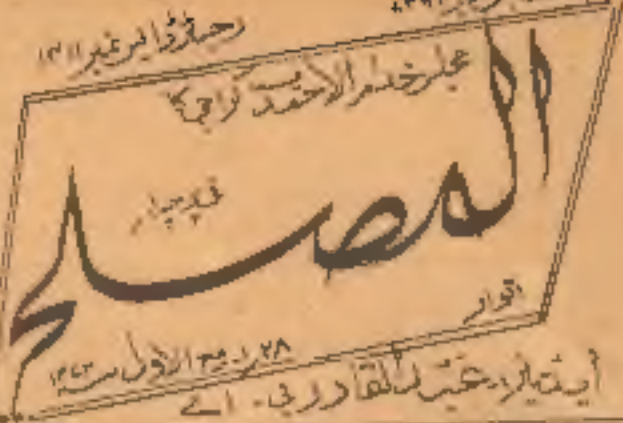 رجسٹرڈ ایل نمبر
مجلس خدام الاحمدیہ کراچی کا
المصلح
فی پرچہ
اتوار
۲۸ ربیع الاول سنہ ۱۳۷۳
ایڈیٹر: عبد القادر بی۔ اے